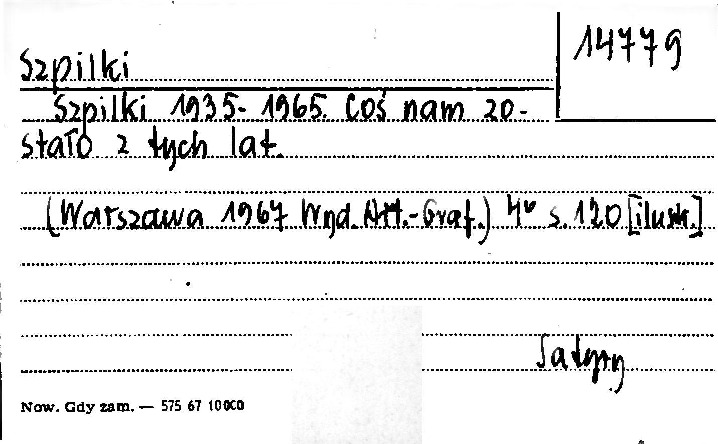 14779
Szpilki
Szpilki 1935-1965. Coś nam zo-
stało z tych lat.
(Warszawa 1967 Wyd. Art.-Graf.) 4° s. 120 [ilustr.]
Satyry
Now. Gdy zam. — 575 67 10000